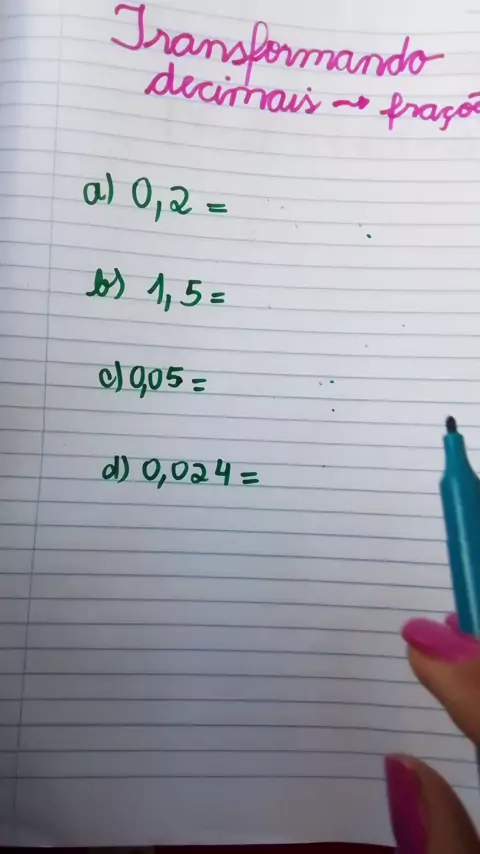 Transformando
decimais → fraçõ
a) 0,2 =
b) 1,5 =
c) 0,05 =
d) 0,024 =